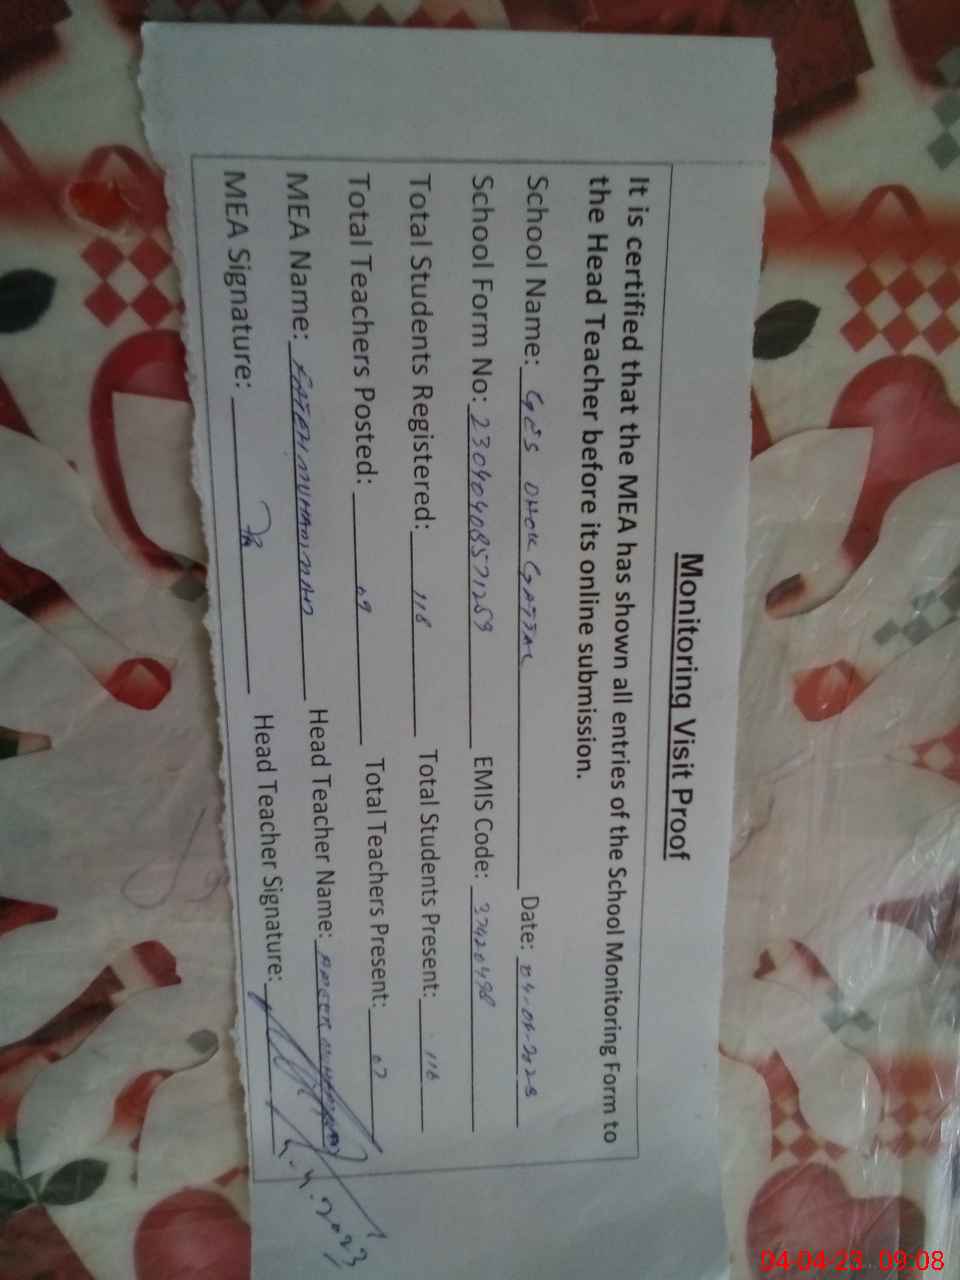 Monitoring Visit Proof
It is certified that the MEA has shown all entries of the School Monitoring Form to
the Head Teacher before its online submission.
School Name: GES DHOK GATTAL Date: 04-04-2023
School Form No: 23040408571259 EMIS Code: 37420498
Total Students Registered: 118 Total Students Present: 116
Total Teachers Posted: 09 Total Teachers Present: 07
MEA Name: FATEH MUHAMMAD Head Teacher Name: AMEER
MEA Signature: Head Teacher Signature:
4.4.2023
04-04-23 09:08